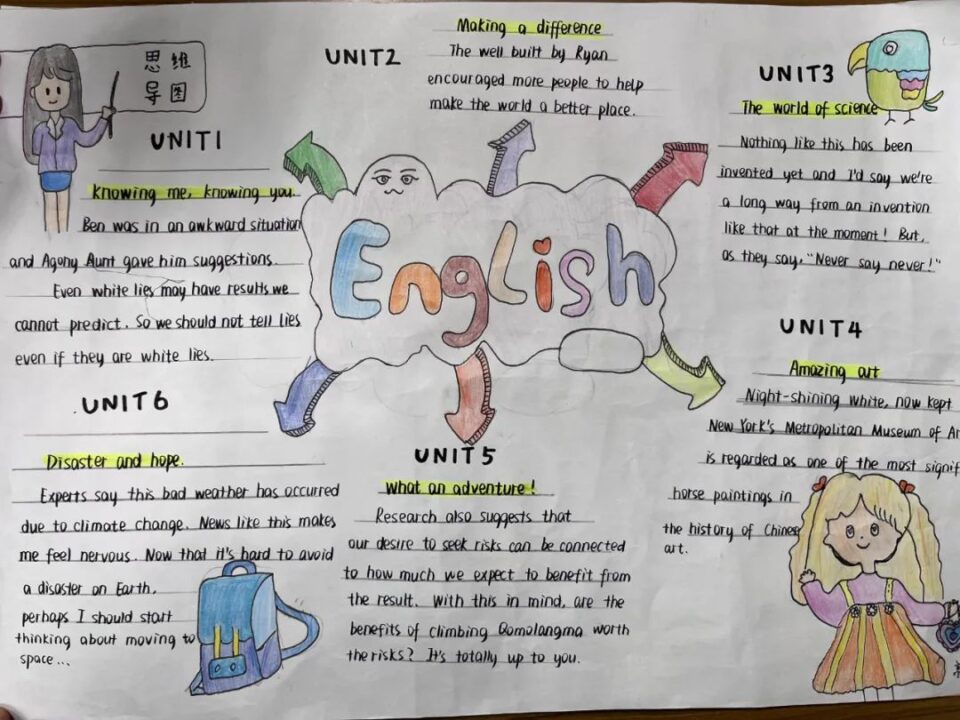 思维
导图
UNIT1
Knowing me, knowing you.
Ben was in an awkward situation
and Agony Aunt gave him suggestions.
Even white lies may have results we
cannot predict. So we should not tell lies
even if they are white lies.
UNIT2
Making a difference
The well built by Ryan
encouraged more people to help
make the world a better place.
UNIT3
The world of science
Nothing like this has been
invented yet and I'd say we're
a long way from an invention
like that at the moment! But,
as they say, "Never say never!"
English
UNIT4
Amazing art
Night-shining white, now kept
New York's Metropolitan Museum of Ar
is regarded as one of the most signif
horse paintings in
the history of Chinese
art.
UNIT5
What an adventure!
Research also suggests that
our desire to seek risks can be connected
to how much we expect to benefit from
the result. With this in mind, are the
benefits of climbing Qomolangma worth
the risks? It's totally up to you.
UNIT6
Disaster and hope.
Experts say this bad weather has occurred
due to climate change. News like this makes
me feel nervous. Now that it's hard to avoid
a disaster on Earth,
perhaps I should start
thinking about moving to
space...